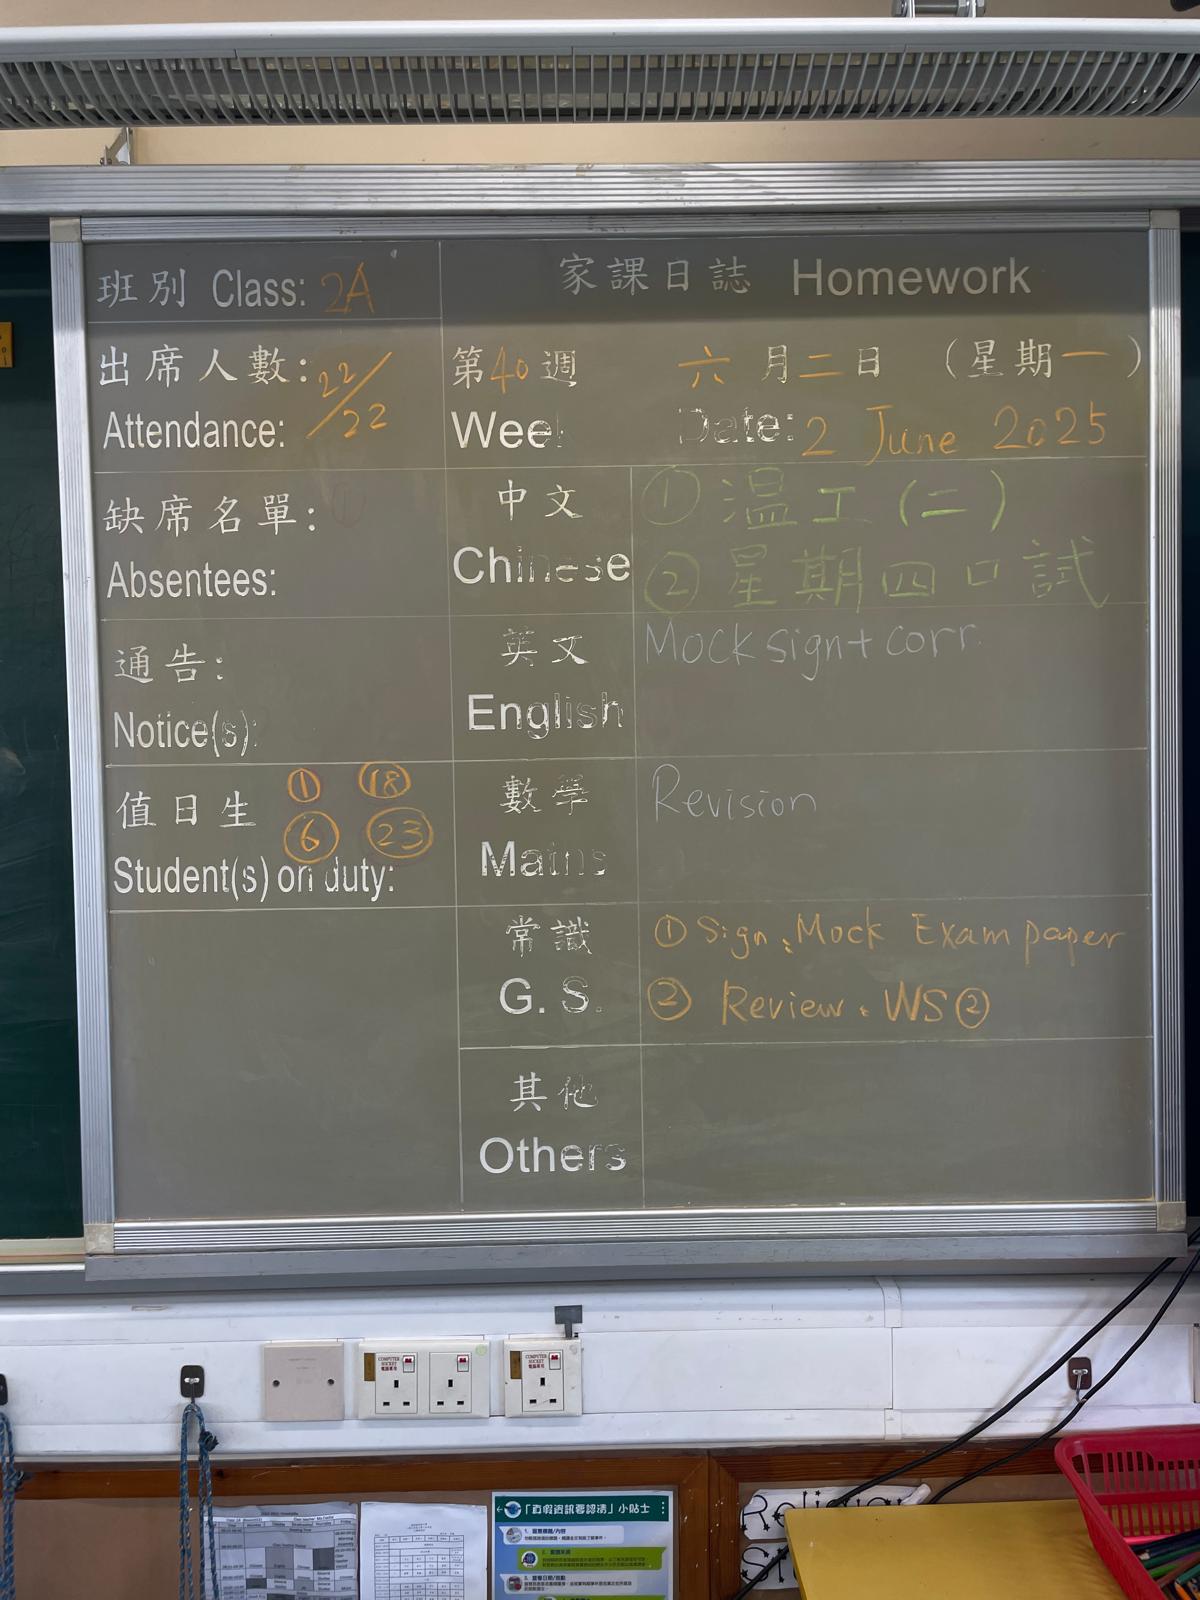 班別 Class: 2A
家課日誌 Homework
出席人數: 22/22
Attendance:
第40週 六月二日 (星期一)
Week Date: 2 June 2025
缺席名單:
Absentees:
中文 ① 溫工(二)
Chinese ② 星期四口試
通告:
Notice(s):
英文 Mock sign + corr.
English
值日生 ① ⑱ ⑥ ㉓
Student(s) on duty:
數學 Revision
Maths
常識 ① Sign: Mock Exam paper
G. S. ② Review: WS②
其他
Others
COMPUTER SOCKET
電腦專用
COMPUTER SOCKET
電腦專用
「真假資訊要認清」小貼士